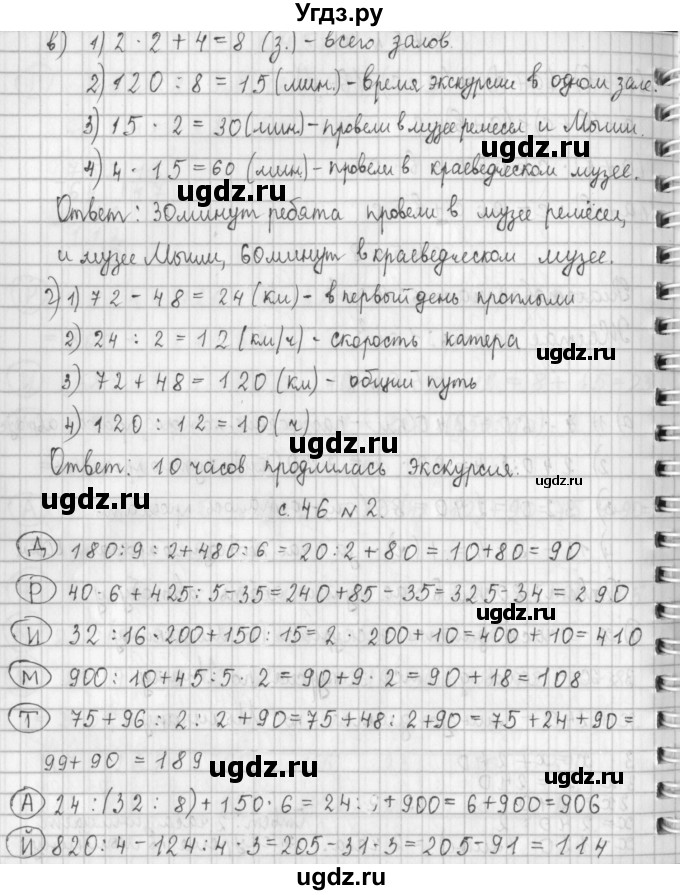 Угдз.ру
в) 1) 2 · 2 + 4 = 8 (з.) - всего залов.
2) 120 : 8 = 15 (мин.) - время экскурсии в одном зале.
3) 15 · 2 = 30 (мин.) - провели в музее ремесел и Мыши.
ugdz.ru
4) 4 · 15 = 60 (мин.) - провели в краеведческом музее.
ugdz.ru ugdz.ru
Ответ: 30 минут ребята провели в музее ремёсел,
и музее Мыши, 60 минут в краеведческом музее.
г) 1) 72 - 48 = 24 (км) - в первый день проплыли
2) 24 : 2 = 12 (км/ч) - скорость катера
ugdz.ru
3) 72 + 48 = 120 (км) - общий путь
4) 120 : 12 = 10 (ч)
ugdz.ru
Ответ: 10 часов продлилась экскурсия.
ugdz.ru ugdz.ru
с. 46 № 2.
Д 180 : 9 : 2 + 480 : 6 = 20 : 2 + 80 = 10 + 80 = 90
Р 40 · 6 + 425 : 5 - 35 = 240 + 85 - 35 = 325 - 34 = 290
ugdz.ru
И 32 : 16 · 200 + 150 : 15 = 2 · 200 + 10 = 400 + 10 = 410
М 900 : 10 + 45 : 5 · 2 = 90 + 9 · 2 = 90 + 18 = 108
ugdz.ru
Т 75 + 96 : 2 : 2 + 90 = 75 + 48 : 2 + 90 = 75 + 24 + 90 =
99 + 90 = 189
ugdz.ru ugdz.ru
А 24 : (32 : 8) + 150 · 6 = 24 : + 900 = 6 + 900 = 906
ugdz.ru
Й 820 : 4 - 124 : 4 · 3 = 205 - 31 · 3 = 205 - 91 = 114
ugdz.ru